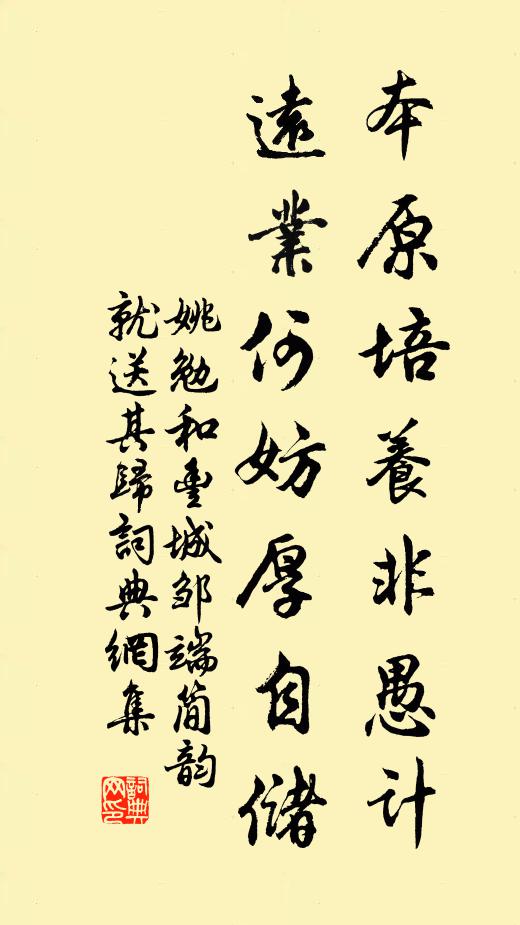 本原培養非愚計
遠業何妨厚自儲
姚勉和豐城邹端简韵
就送其歸詞典網集
詞典
网印